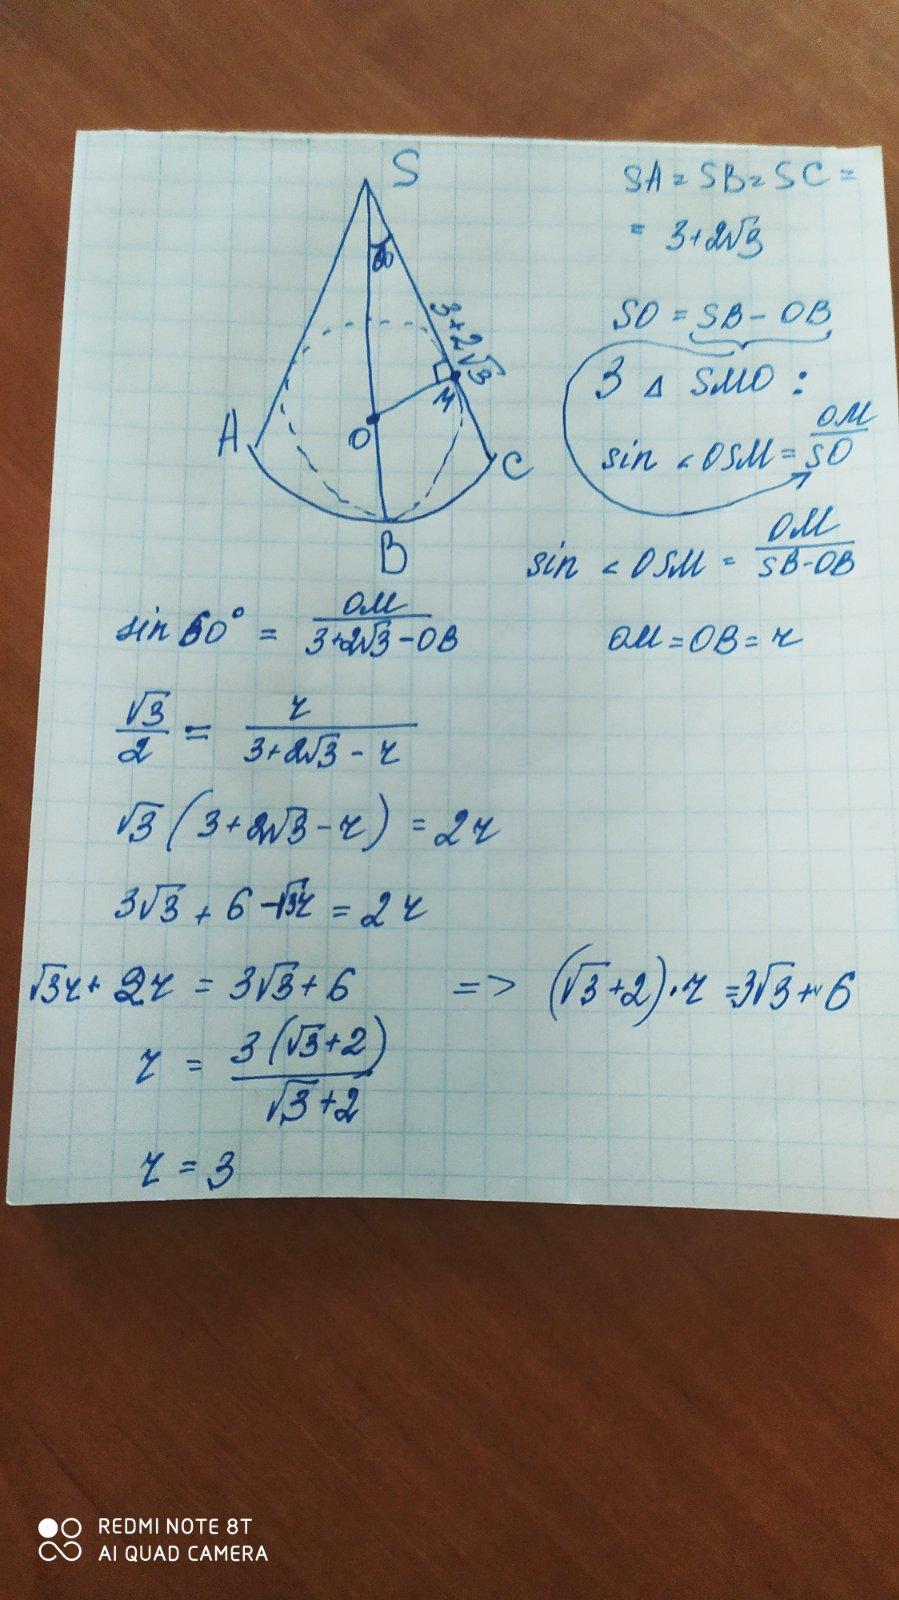 S
SA = SB = SC =
= 3+2√3
3+2√3
SO = SB - OB
З Δ SMO :
M
O
A
C
B
sin ∠OSM = OM/SO
sin ∠OSM = OM/SB-OB
sin 60° = OM/3+2√3-OB
OM = OB = r
√3/2 = r/3+2√3-r
√3 (3+2√3-r) = 2r
3√3 + 6 -√3r = 2r
√3r + 2r = 3√3+6 => (√3+2)·r =3√3+6
r = 3(√3+2)/√3+2
r = 3
REDMI NOTE 8T
AI QUAD CAMERA